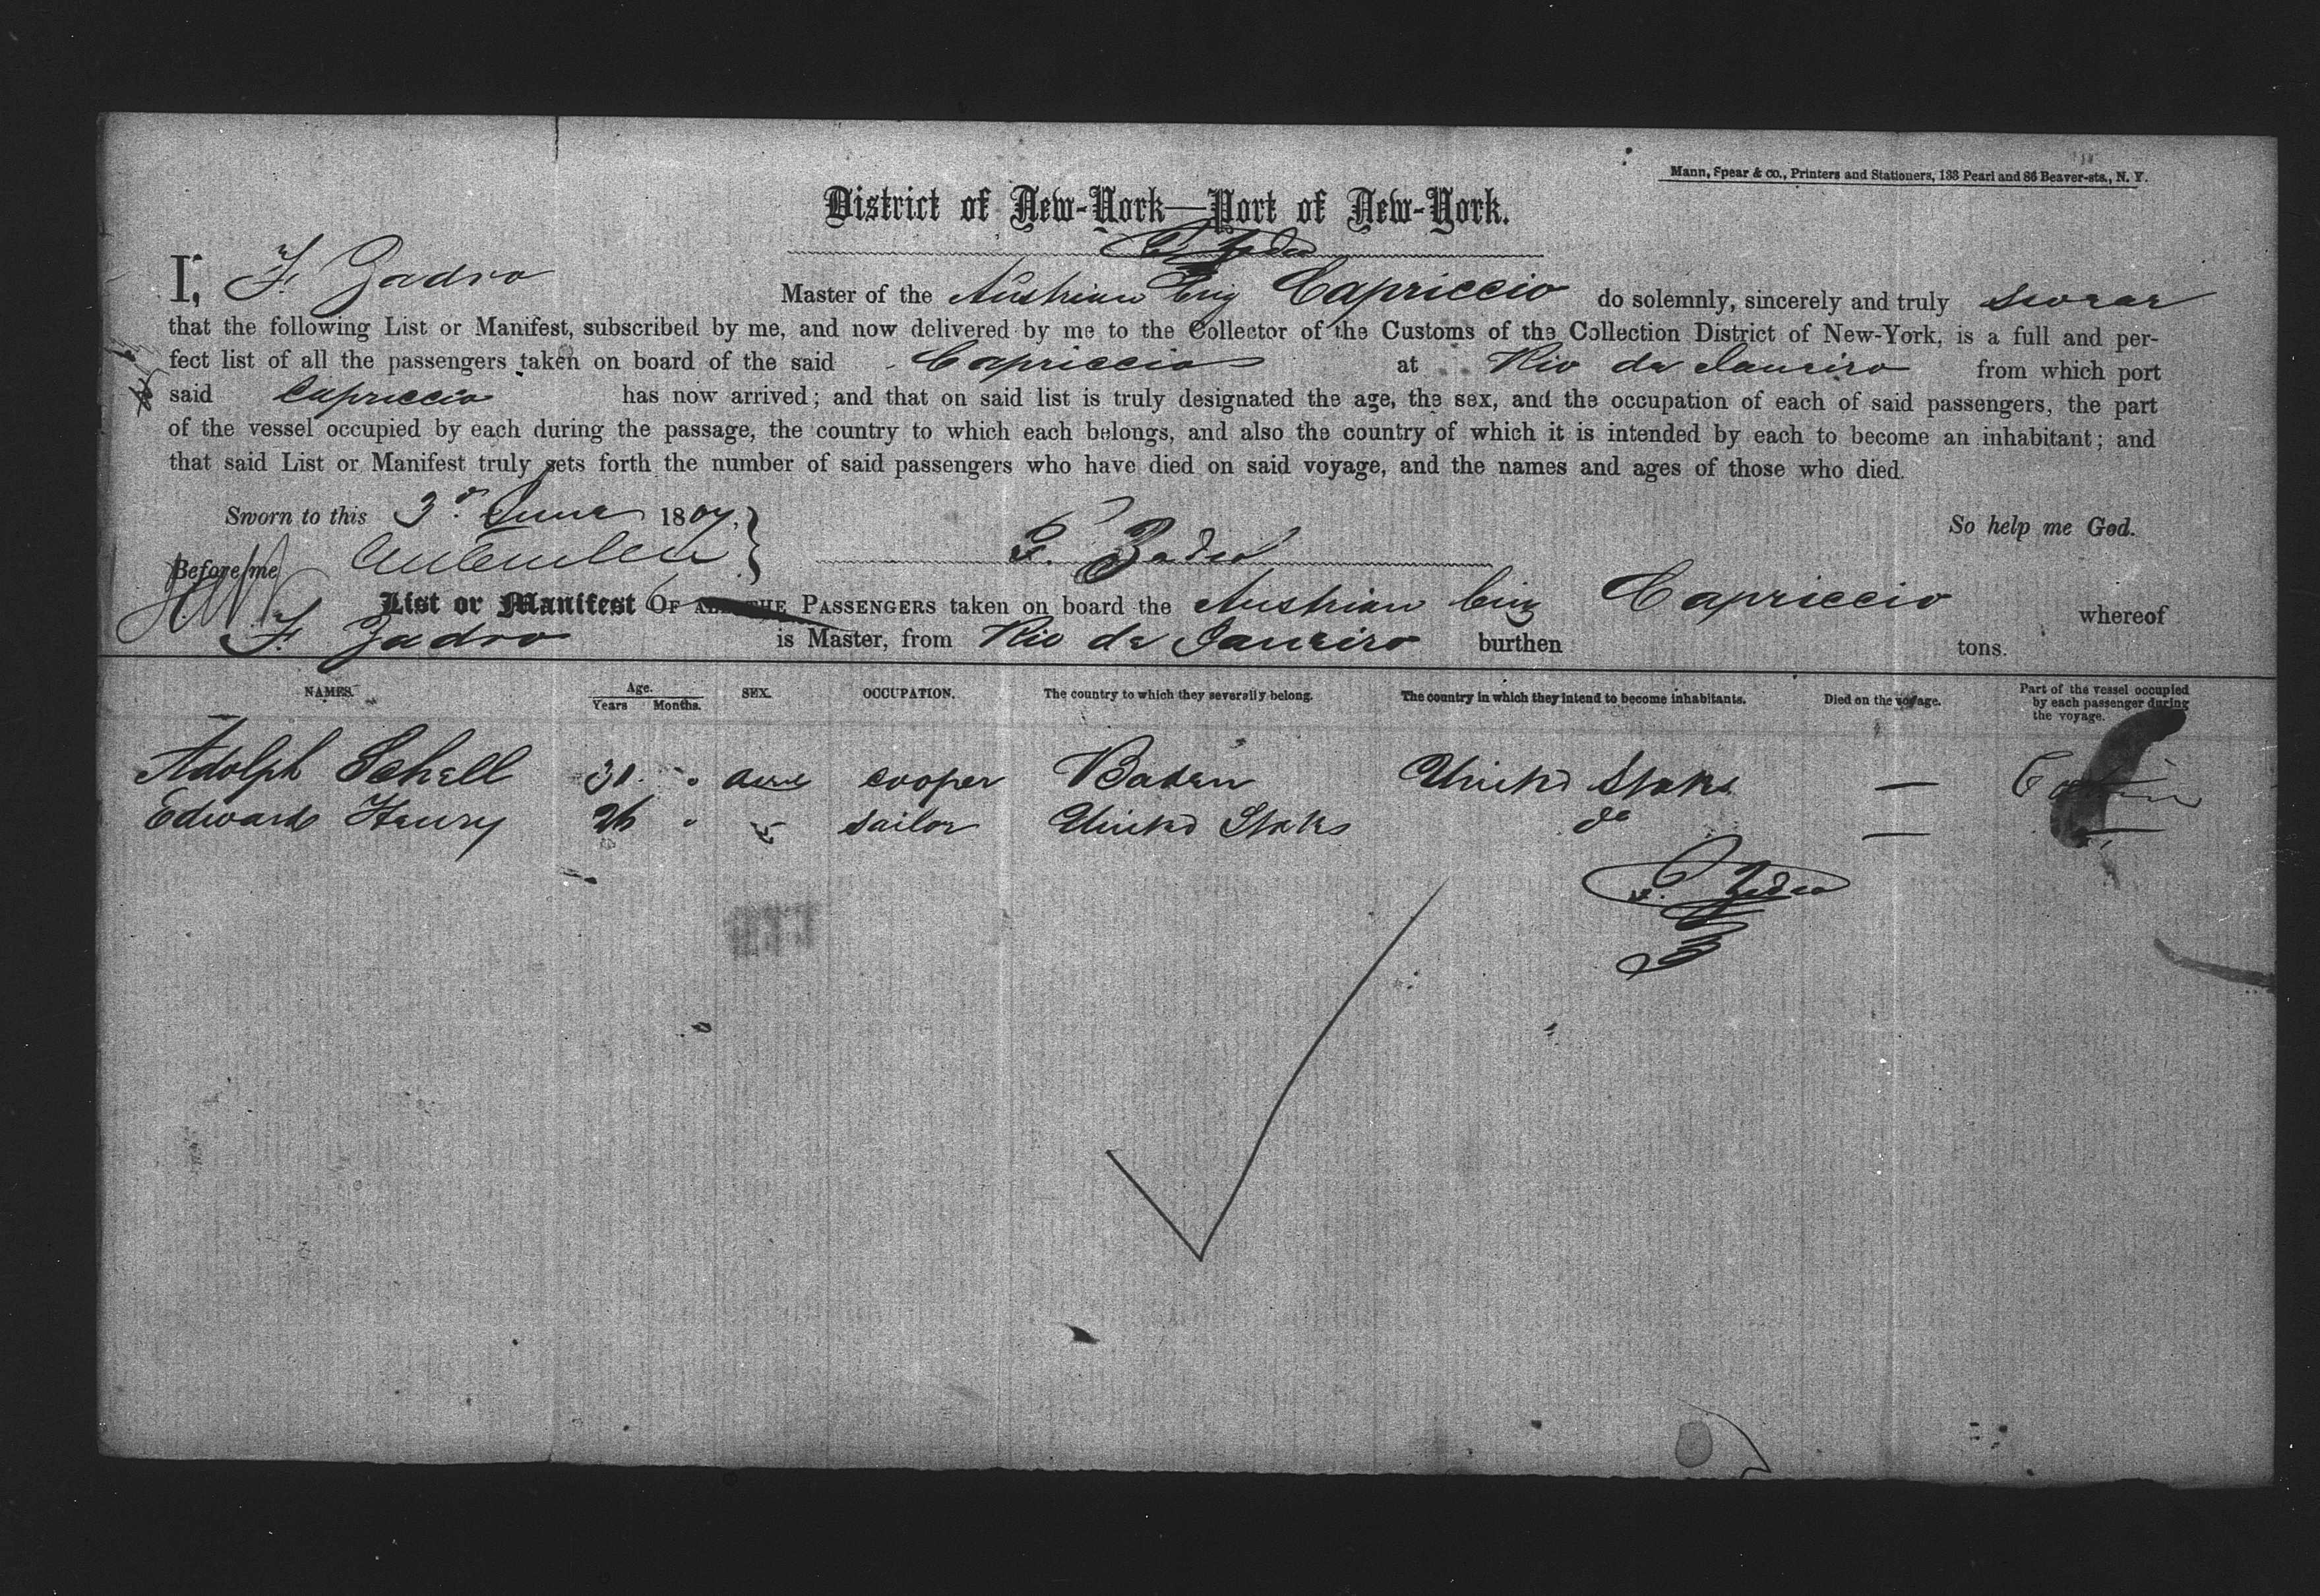 Mann, Spear & co., Printers and Stationers, 133 Pearl and 86 Beaver-sts., N. Y.
District of New-York—Port of New-York.
F. Zadro
I, F. Zadro Master of the Austrian brig Capriccio do solemnly, sincerely and truly swear
that the following List or Manifest, subscribed by me, and now delivered by me to the Collector of the Customs of the Collection District of New-York, is a full and per-
fect list of all the passengers taken on board of the said Capriccio at Rio de Janeiro from which port
said Capriccio has now arrived; and that on said list is truly designated the age, the sex, and the occupation of each of said passengers, the part
of the vessel occupied by each during the passage, the country to which each belongs, and also the country of which it is intended by each to become an inhabitant; and
that said List or Manifest truly sets forth the number of said passengers who have died on said voyage, and the names and ages of those who died.
Sworn to this 3d June 1867. So help me God.
Before me F. Zadro
List or Manifest OF ALL THE PASSENGERS taken on board the Austrian brig Capriccio whereof
F. Zadro is Master, from Rio de Janeiro burthen tons.
NAMES. Age. Years Months. SEX. OCCUPATION. The country to which they severally belong. The country in which they intend to become inhabitants. Died on the voyage. Part of the vessel occupied by each passenger during the voyage.
Adolph Schell 31 " cooper Baden United States — Cabin
Edward Henry 26 " " sailor United States do — "
F. Zadro